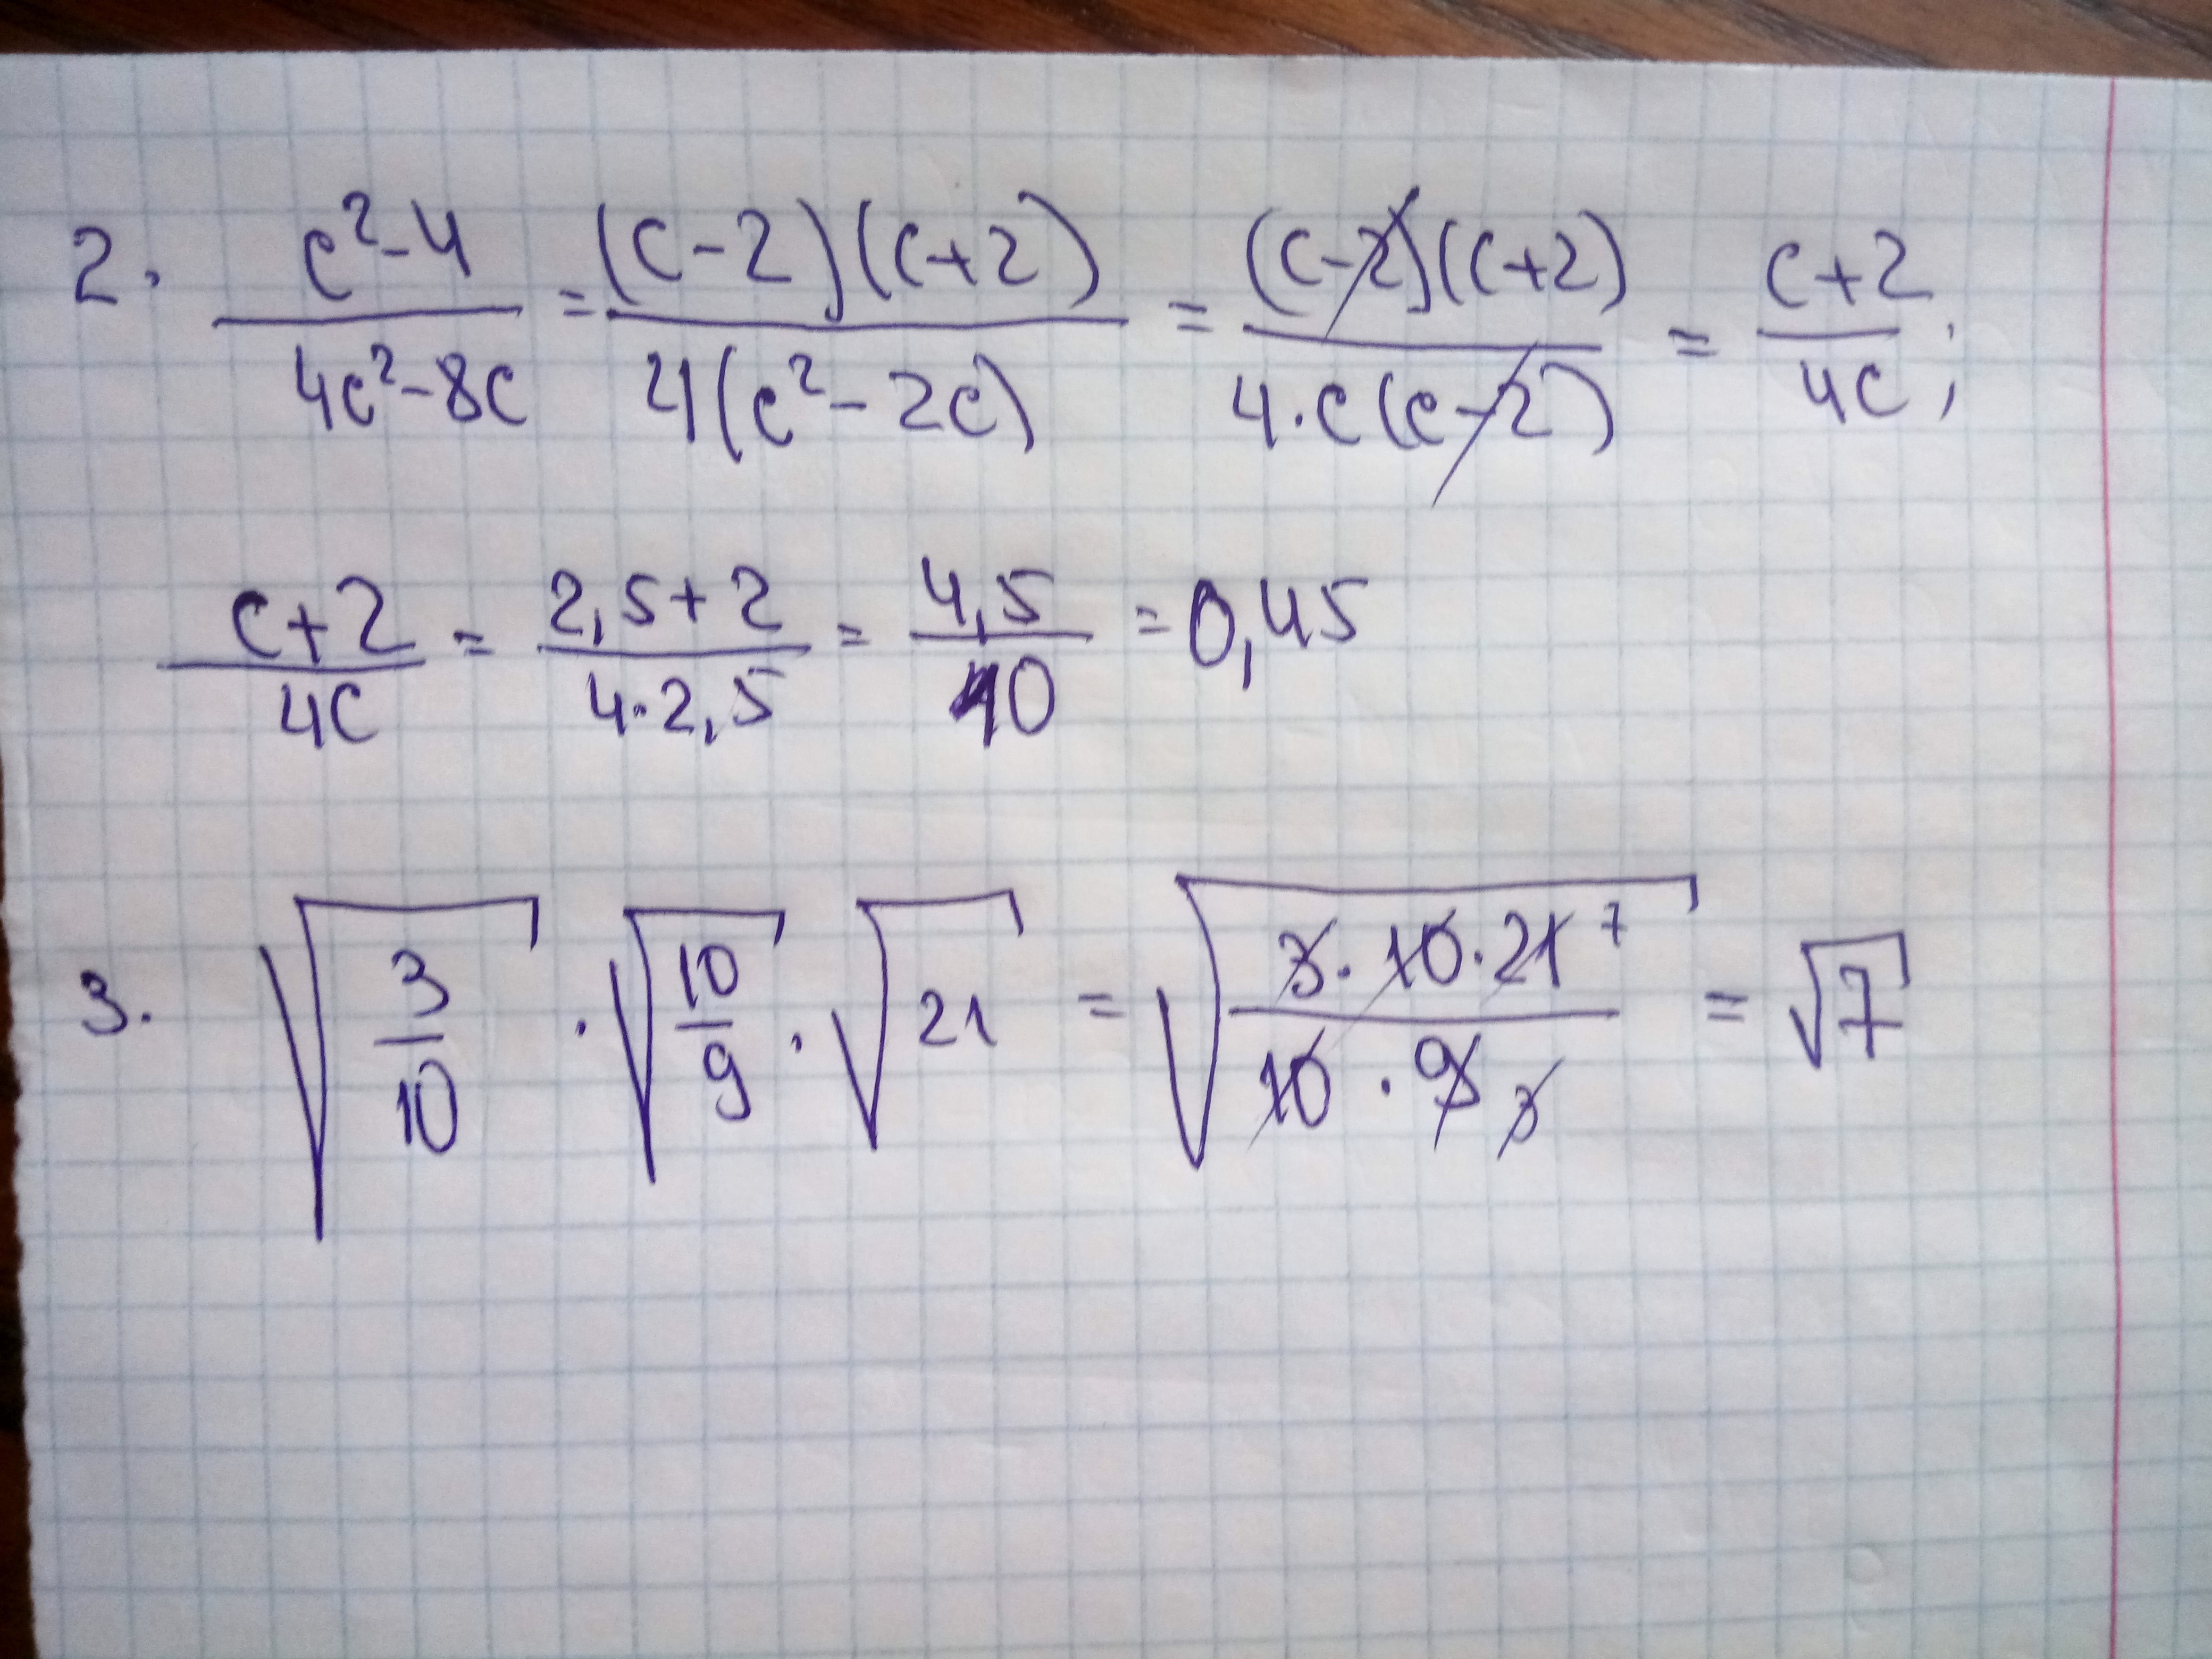 2. (c²-4)/(4c²-8c) = ((c-2)(c+2))/(4(c²-2c)) = ((c-2)(c+2))/(4·c(c-2)) = (c+2)/(4c);
(c+2)/(4c) = (2,5+2)/(4·2,5) = 4,5/10 = 0,45
3. √(3/10) · √(10/9) · √21 = √((3·10·21 7)/(10·9 3)) = √7